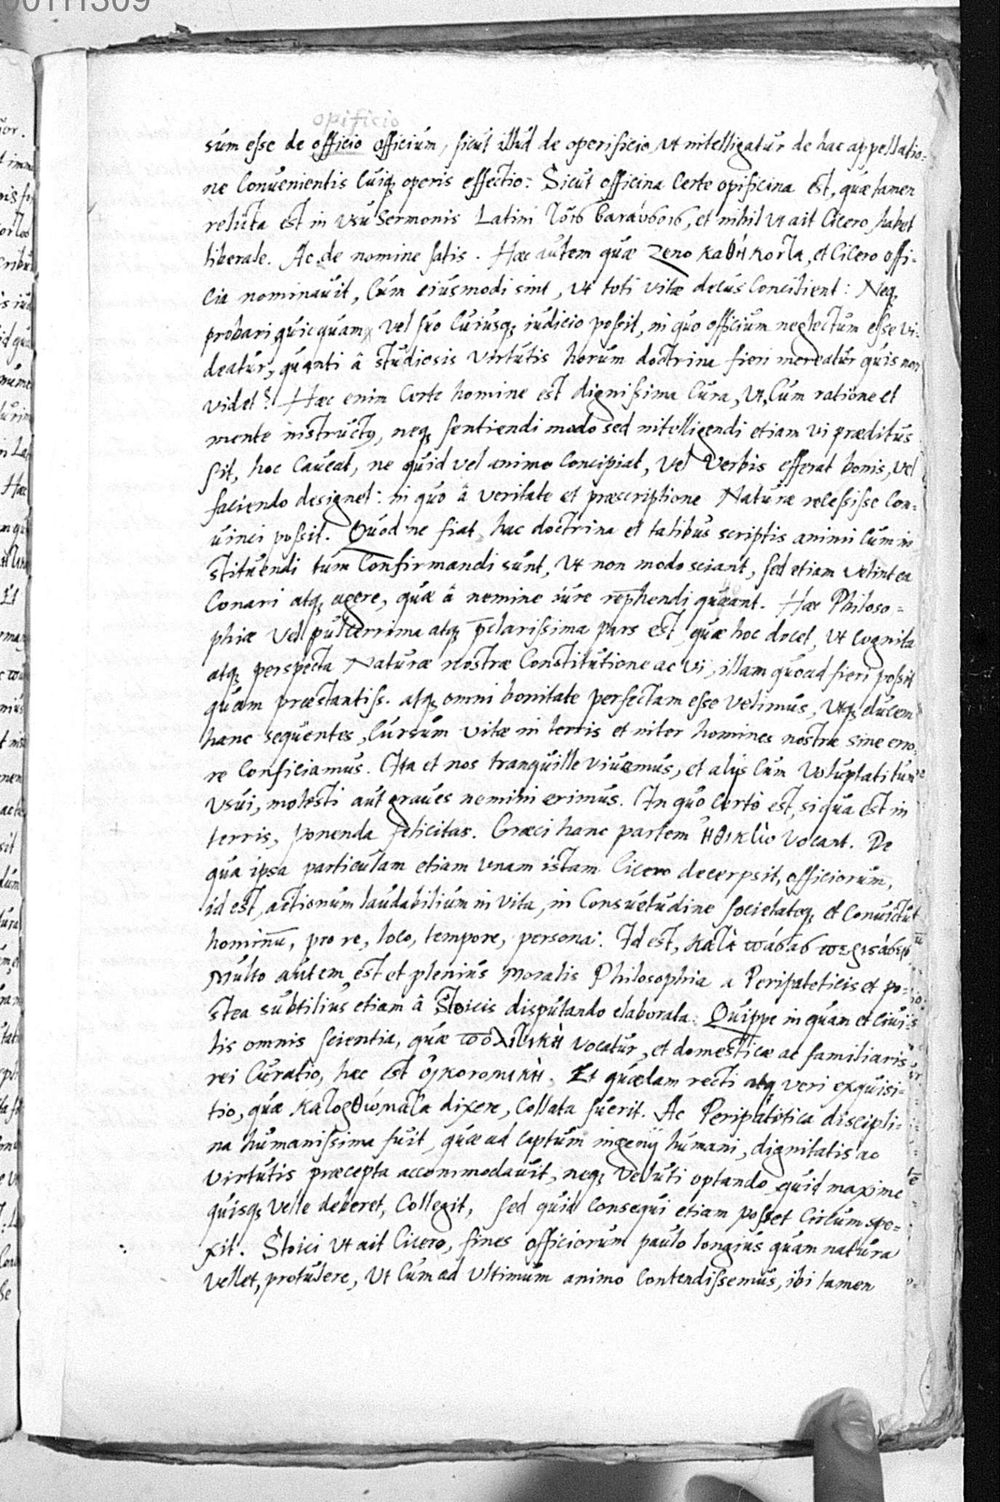 opificio
sum esse de officio officium, sicut illud de operificio, ut intelligatur de hac appellatio-
ne Convenientis Cuiq; operis effectio: Sicut officina Certe opificina est, quæ tamen
est in usu Sermonis Latini et nihil ut ait Cicero, habet
liberale. Ac de nomine satis. Hæc autem quæ Zeno καθήκοντα, et Cicero offi-
cia nominavit, Cum eiusmodi sint, ut toti vitæ decus Concilient: Neq;
probari quicquam vel suo Cuiusq; iudicio possit, in quo officium neglectum esse vi-
deatur, quanti â studiosis virtutis horum doctrina fieri mereatur quis non
videt? Hæc enim Certe homine est dignissima Cura, ut, Cum ratione et
mente instructus, neq; sentiendi modo sed intelligendi etiam vi præditus
sit, hoc Caveat, ne quid vel animo Concipiat, vel Verbis efferat bonis, vel
faciendo designet: in quo â veritate et præscriptione Naturæ recessisse Con-
uinci possit. Quod ne fiat, hac doctrina et talibus scriptis animi Cum in
stituendi tum Confirmandi sunt, ut non modo sciant, sed etiam velint ea
Conari atq; agere, quæ â nemine iure rep̄hendi queant. Hæc Philoso-
phiæ vel pulcerrima atq; p̄clarissima pars est quæ hoc docet, ut Cognita
atq; perspecta Naturæ nostræ Constitutione ac vi, illam quoad fieri possit
quam præstantiss. atq; omni bonitate perfectam esse velimus, utq; ducem
hanc sequentes, Cursum vitæ in terris et inter homines nostræ sine erro,
re Conficiamus. Ita et nos tranquille vivemus, et alijs Cum voluptati tum
usui, molesti aut graves nemini erimus. In quo Certo est, si qua est in
terris, ponenda felicitas. Græci hanc partem vocant. De
qua ipsa particulam etiam unam istam Cicero decerpsit, officiorum,
id est, actionum laudabilium in vita, in Consuetudine societateq; et Convictu
hominū, pro re, loco, tempore, persona: Id est,
Multo autem est et plenius moralis Philosophia a Peripateticis et po-
stea subtilius etiam â Stoicis disputando elaborata: Quippe in quam et Civi-
lis omnis scientia, quæ πολιτικὴ vocatur, et domesticæ ac familiaris
rei Curatio, hæc est οἰκονομικὴ. Et quædam recti atq; veri exquisi-
tio, quæ κατορθώματα dixere, Collata fuerit. Ac Peripatetica discipli-
na humanissima fuit, quæ ad Captum ingenij humani, dignitatis ac
virtutis præcepta accommodavit, neq; veluti optando quid maxime
quisq; velle deberet, Collegit, sed quid Consequi etiam posset Circumspe-
xit. Stoici ut ait Cicero, fines officiorum paulo longius quam natura
vellet, protulere, ut Cum ad ultimum animo Contendissemus, ibi tamen